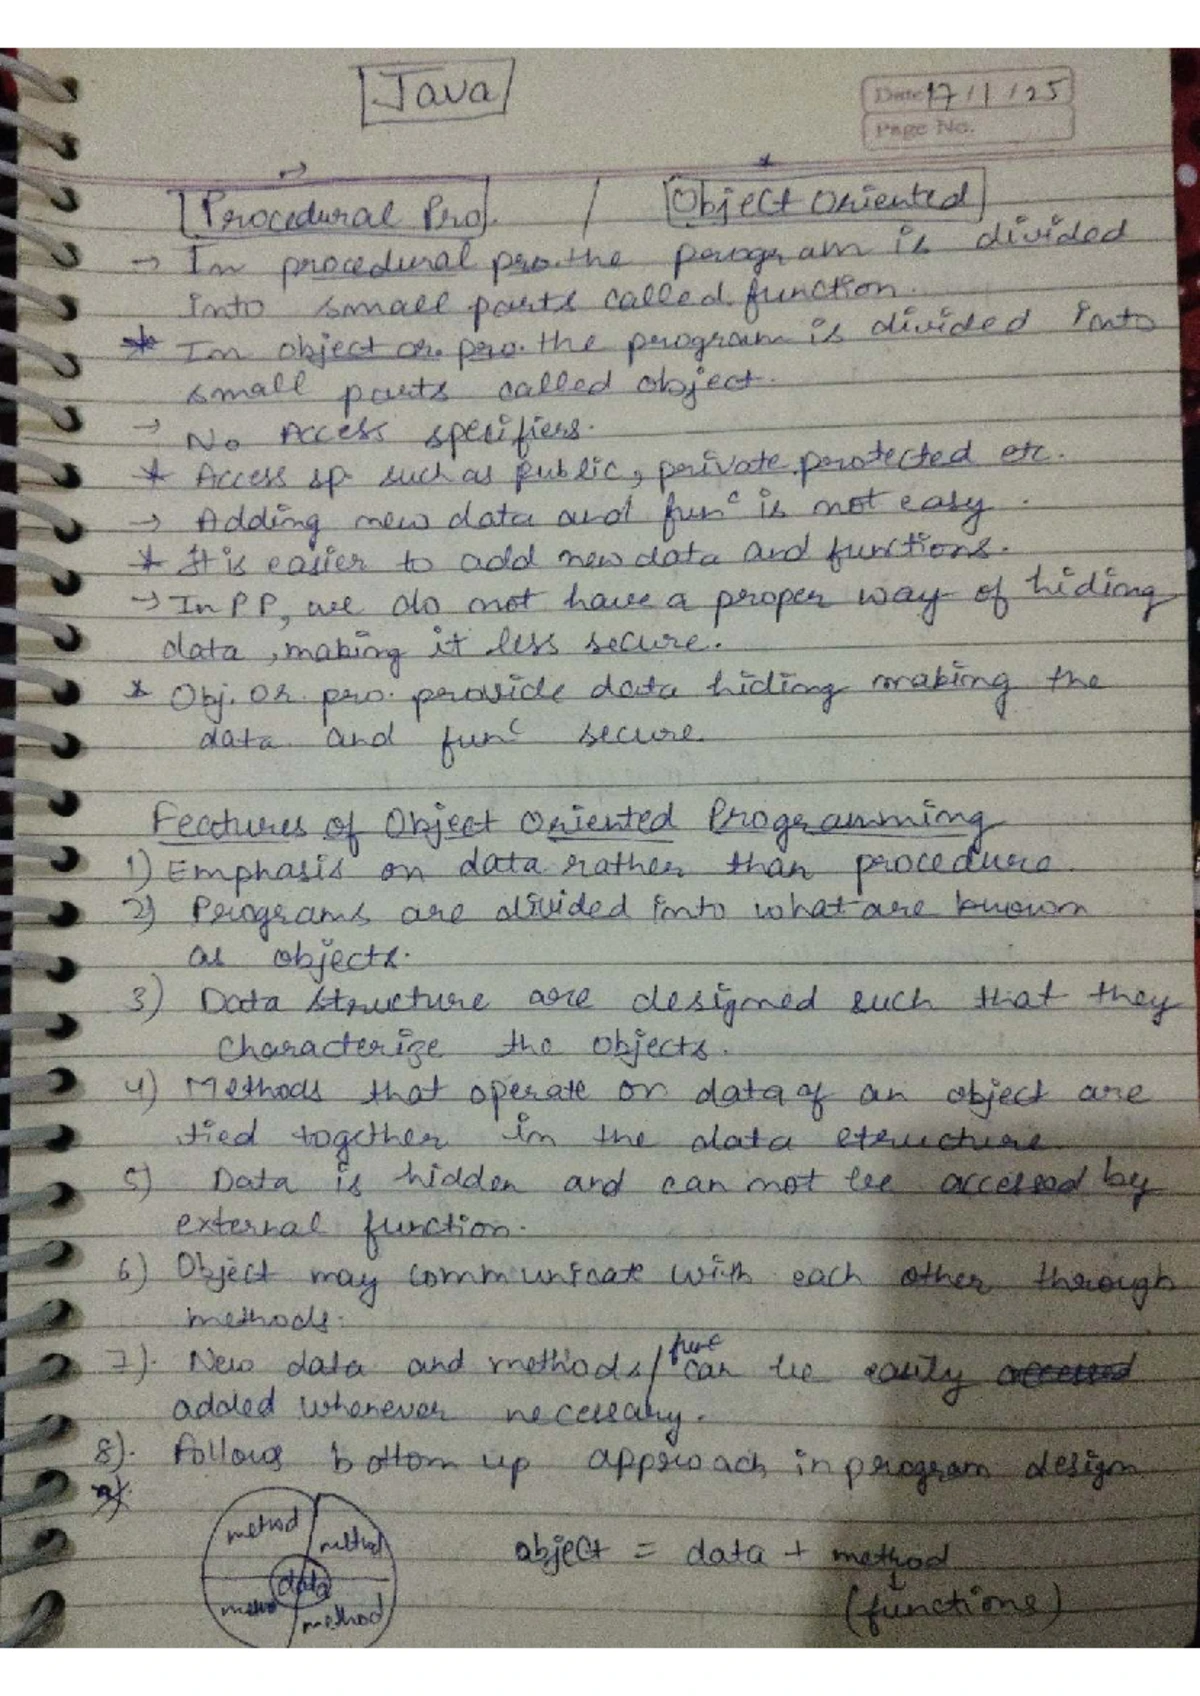 Java
Date 17/1/25
Page No.
Procedural Pro. / Object Oriented
→ In procedural pro. the program is divided
into small parts called function.
* In object or. pro. the program is divided into
small parts called object.
→ No Access specifiers.
* Access sp. such as public, private, protected etc.
→ Adding new data and funᶜ is not easy.
* It is easier to add new data and functions.
→ In PP, we do not have a proper way of hiding
data, making it less secure.
* Obj. Or. pro. provide data hiding making the
data and funᶜ secure.
Features of Object Oriented Programming
1) Emphasis on data rather than procedure.
2) Programs are divided into what are known
as objects.
3) Data structure are designed such that they
characterize the objects.
4) Methods that operate on data of an object are
tied together in the data structure
5) Data is hidden and can not be accessed by
external function.
6) Object may communicate with each other through
methods.
7). New data and methods/func can be easily
added whenever necessary.
8). Follows bottom up approach in program design
method method
object = data + method
data
method
(functions)